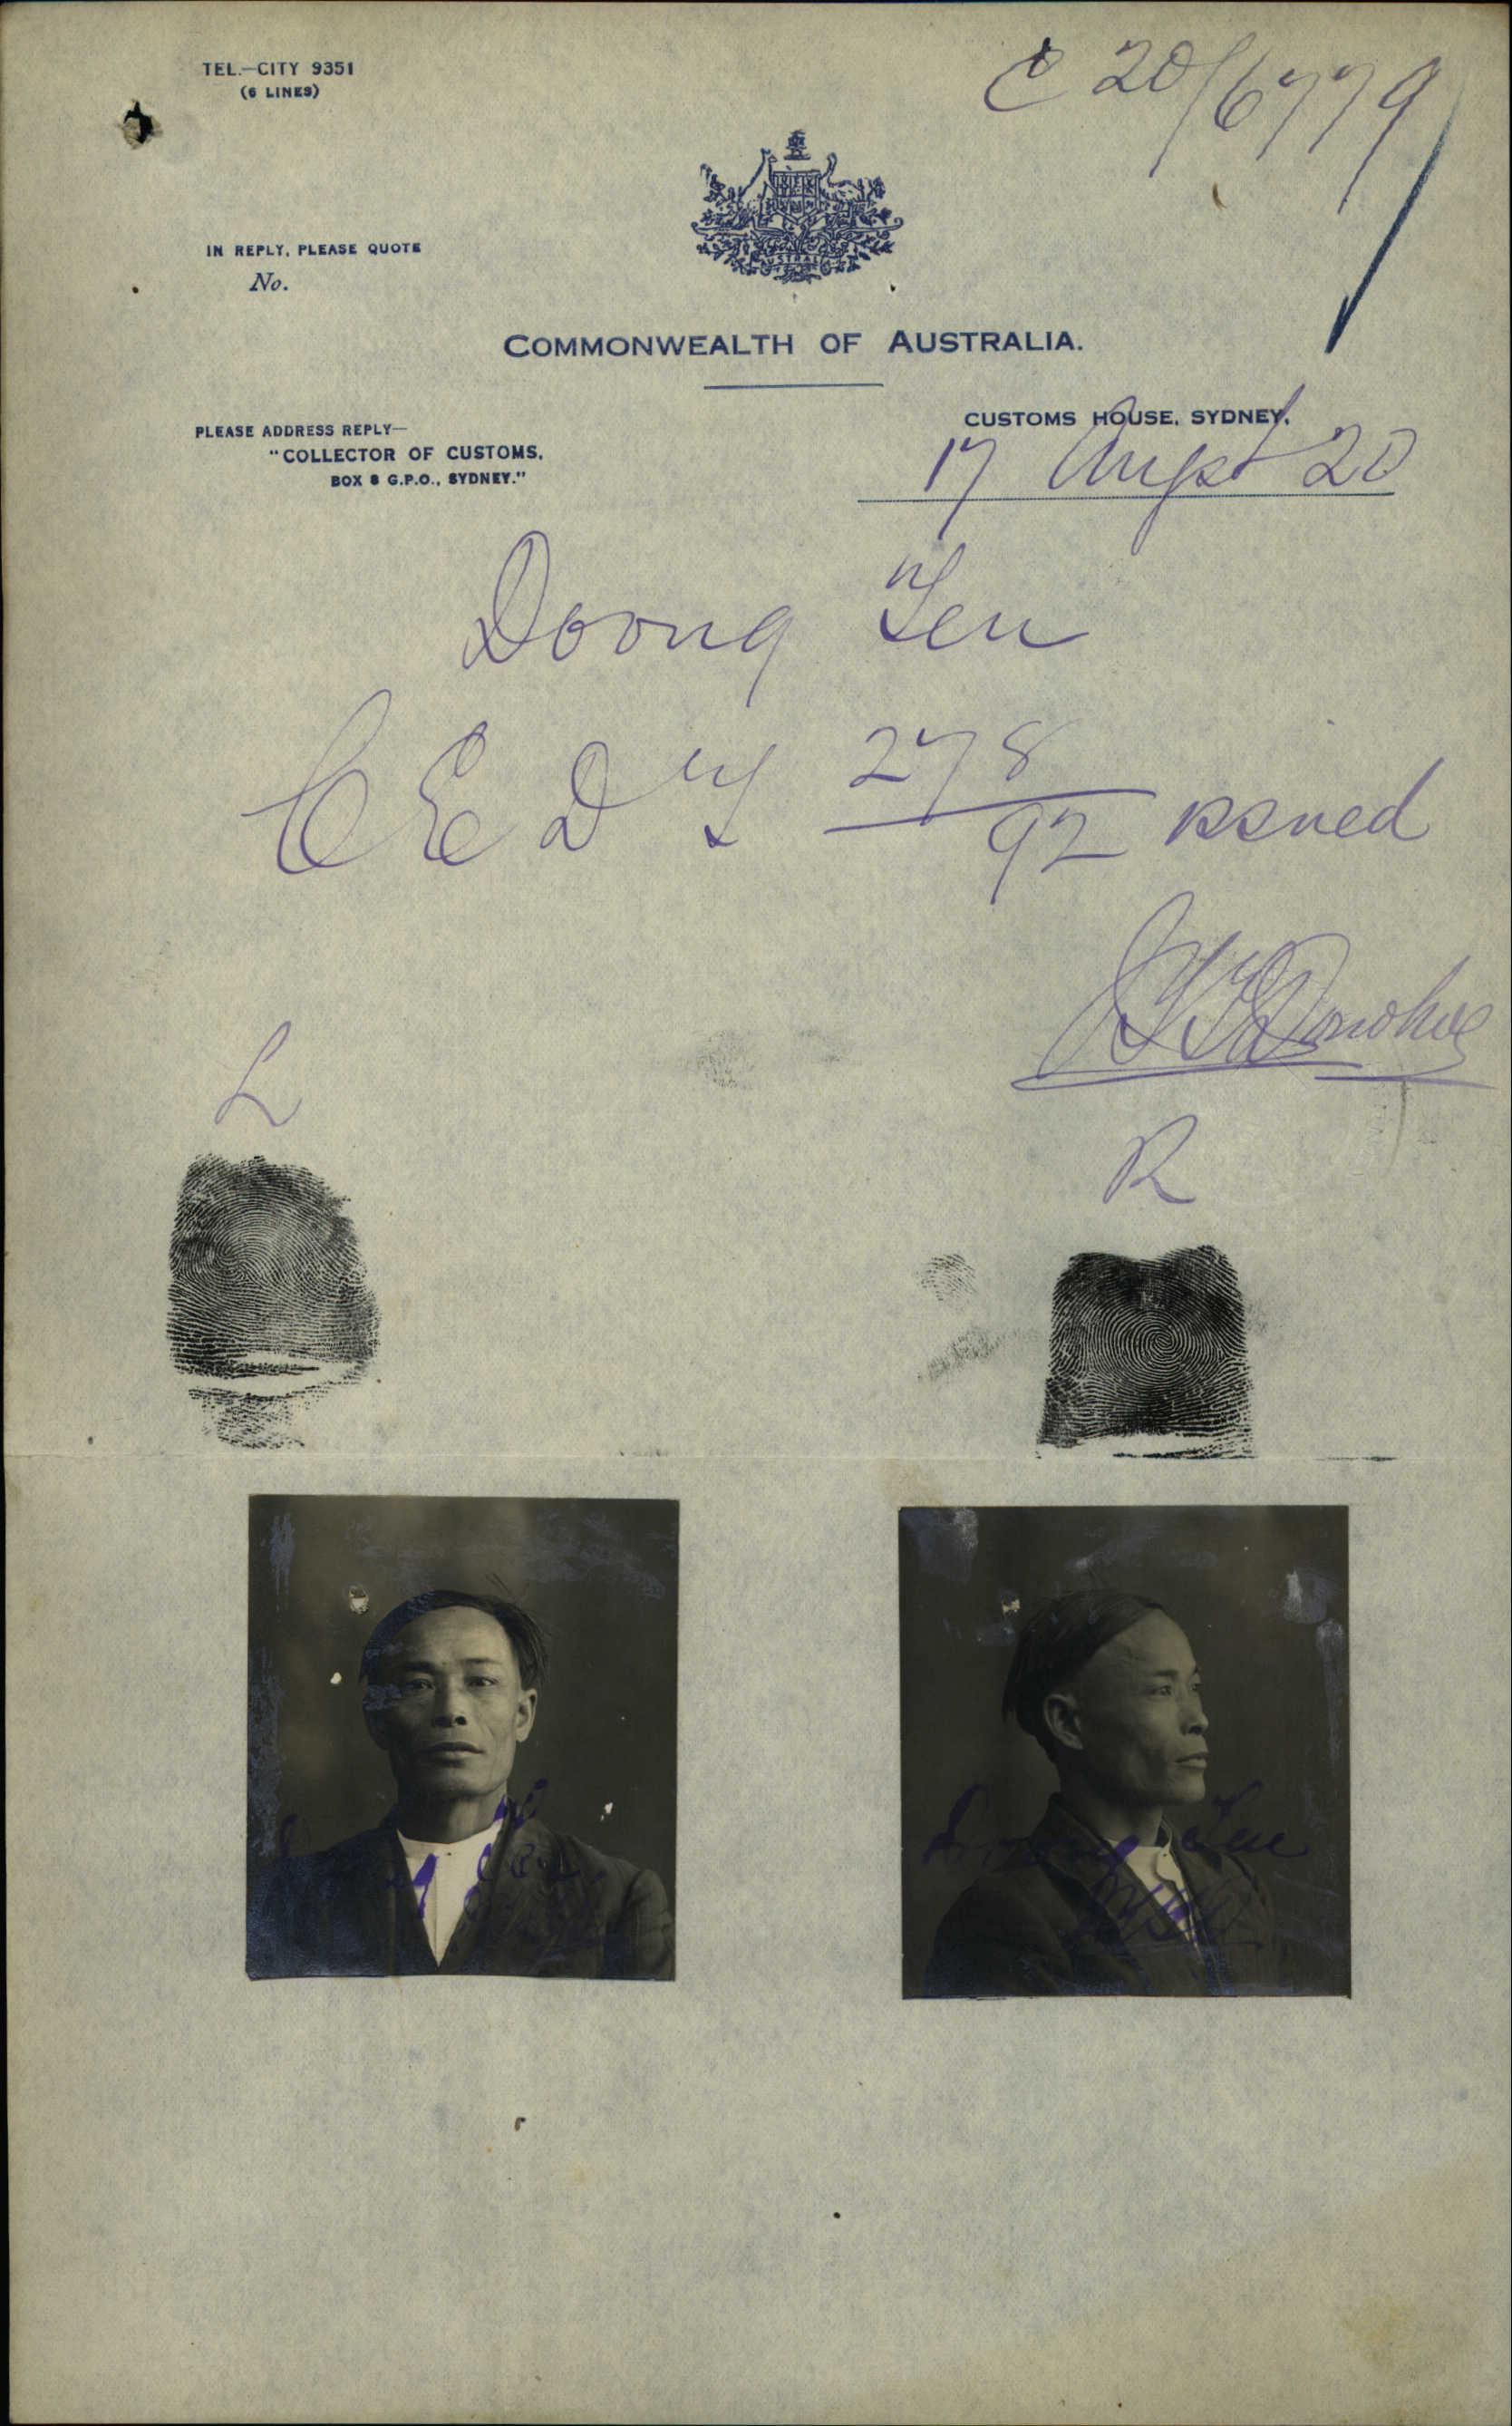 TEL.—CITY 9351
(6 LINES)
C 20/6779
AUSTRALIA
IN REPLY, PLEASE QUOTE
No.
COMMONWEALTH OF AUSTRALIA.
PLEASE ADDRESS REPLY—
"COLLECTOR OF CUSTOMS,
BOX 8 G.P.O., SYDNEY."
CUSTOMS HOUSE, SYDNEY,
17 August 20
Doong Yen
C E D T 278/92 issued
Donohue
L
R